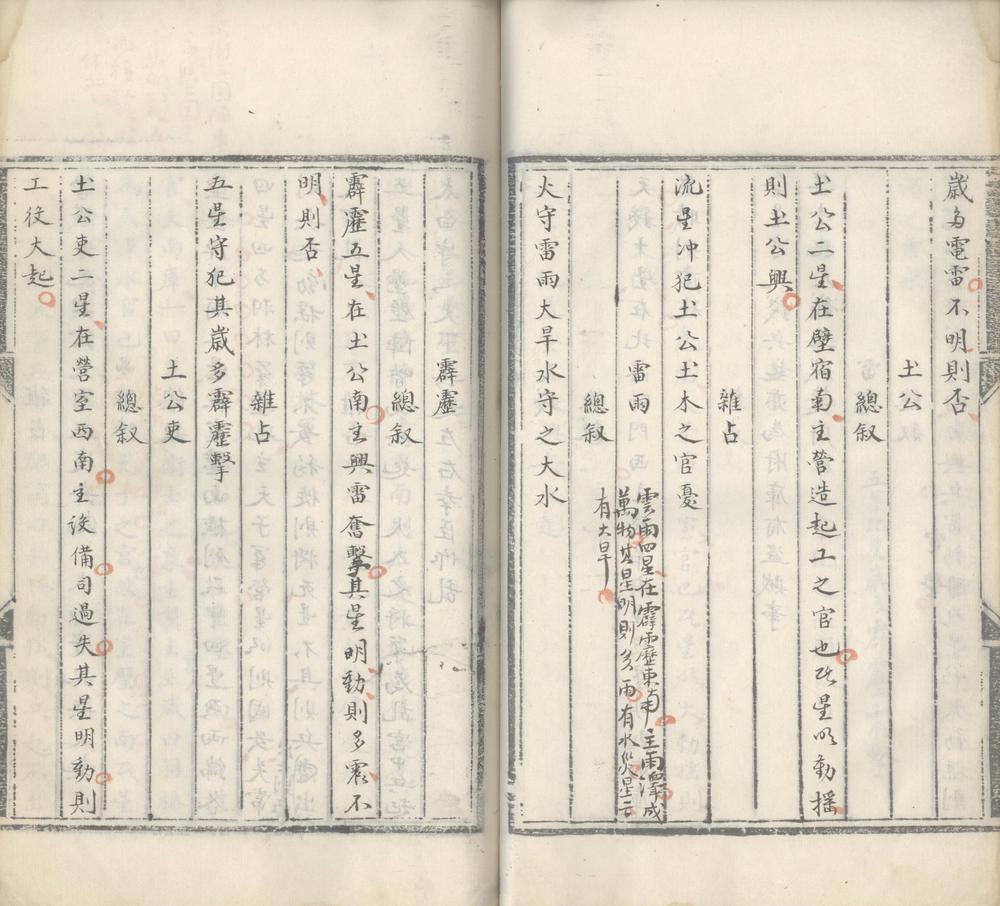 歲多電雷不明則否
土公
總叙
土公二星在壁宿南主營造起工之官也此星明動搖
則土公興
雜占
流星冲犯土公土木之官憂
雷雨
總叙
雲雨四星在霹靂東南主雨澤成
萬物其星明則多雨有水災星
有大旱
火守雷雨大旱水守之大水
霹靂
總叙
霹靂五星在土公南主興雷奮擊其星明動則多震不
明則否
雜占
五星守犯其歲多霹靂擊
土公吏
總叙
土公吏二星在營室西南主設備司過失其星明動則
工役大起